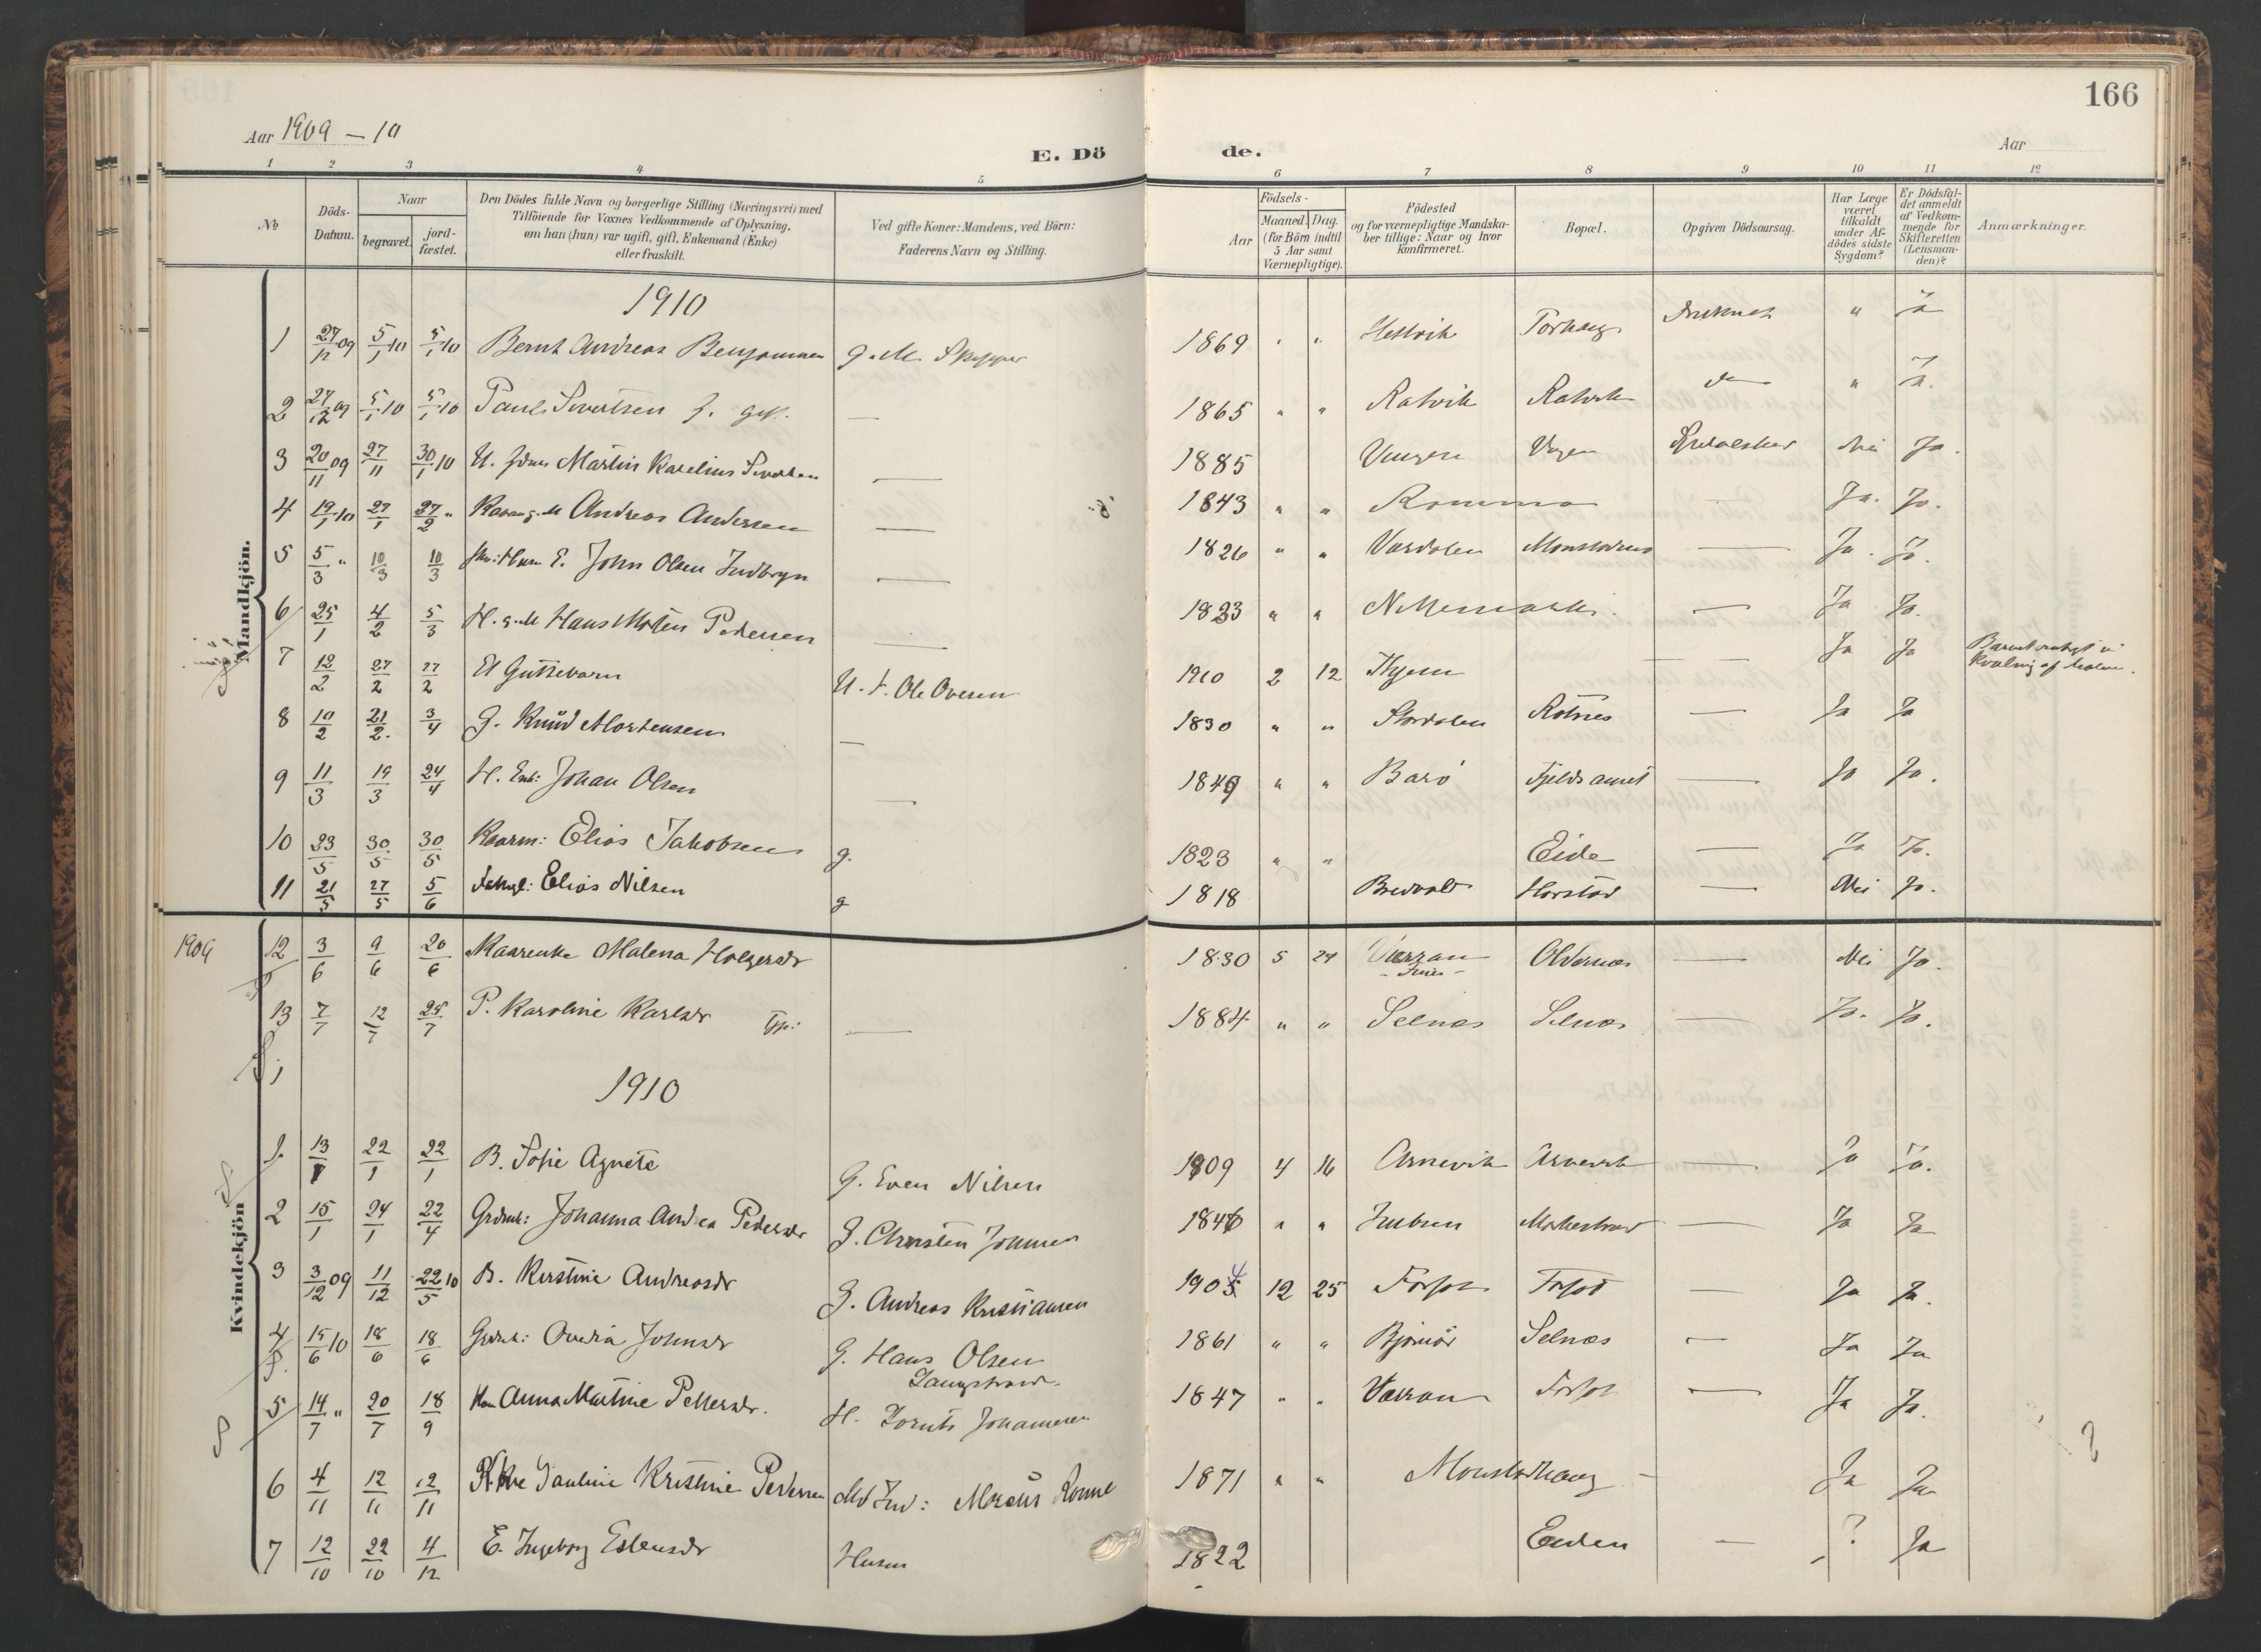 166
Aar 1909 — 10
E. Dö de.
Aar
1 2 3 4 5 6 7 8 9 10 11 12
No
Döds-Datum.
Naar
begravet. jord-fæstet.
Den Dödes fulde Navn og borgerlige Stilling (Næringsvei) med
Tilföiende for Voxnes Vedkommende af Oplysning,
om han (hun) var ugift, gift, Enkemand (Enke)
eller fraskilt.
Ved gifte Koner: Mandens, ved Börn:
Faderens Navn og Stilling.
Födsels-
Aar
Maaned. Dag.
(for Börn indtil
5 Aar samt
Værnepligtige).
Födested
og for værnepligtige Mandska-
ber tillige: Naar og hvor
konfirmeret.
Bopæl.
Opgiven Dödsaarsag.
Har Læge
været
tilkaldt
under Af-
dödes sidste
Sygdom?
Er Dödsfal-
det anmeldt
af Vedkom-
mende for
Skifteretten
(Lensman-
den)?
Anmærkninger.
Mandkjön.
1910
1 27/12 09 5/1 10 5/1 10 Bernt Andreas g. M. Skipper 1869 " " Druknet " Ja
2 27/12 09 5/1 10 5/1 10 Paul Sivertsen f. gift. — 1865 " " Ratvik Ratvik do " Ja.
3 20/11 09 27/11 30/1 10 U. Martin Karelius Sivertsen — 1885 Nei Ja.
4 19/1 10 27/1 27/2 " g. M Andreas Andersen — 1843 " " — Ja. Ja.
5 5/3 " 10/3 10/3 E. John Olsen Indbryn — 1826 " " Værdalen — Ja. Ja.
6 25/1 4/2 5/3 H. g. M Hans Pedersen — 1823 " " — Ja Ja.
7 12/2 27/2 27/2 Et Guttebarn U. F. Ole Ovesen 1910 2 12 — Ja Ja Barnet
Kvælning af
8 10/2 21/2. 3/4 G. Knud Mortensen — 1830 " " Stordalen Rotnes — Ja Ja
9 11/3 19/3 24/4 H. Enk: Johan Olsen — 1849 " " — Ja Ja.
10 23/5 30/5 30/5 Kaarm: Elias Jakobsen g. 1823 " " Eide — Ja Ja.
11 21/5 27/5 5/6 Elias Nilsen g 1818 — Nei Ja.
1909
12 3/6 9/6 20/6 Kaarenke Malena Holgersdr 1830 5 Værran Oldernes — Nei Ja.
13 7/7 12/7 25/7 P. Karoline Karlsdr — 1884 " " Selnæs Selnæs — Ja. Ja.
Kvindekjön
1910
1. 13/1 22/1 22/1 B. Sofie Agnete G. Even Nilsen 1909 4 16 Arnevik Arnevik — Ja Ja.
2 15/1 24/1 22/4 Grdmk: Johanna Andrea Pedersdr G. Christen 1846 " " — Ja Ja
3 3/12 09 11/12 22/5 10 B. Kirstine Andreasdr G. Andreas Kristiansen 1904 12 25 Forsot Forsot — Ja Ja.
4 15/6 10 18/6 18/6 Grdmk: Ovedia Johnsdr G. Hans Olsen
Langstrand. 1861 " " Bjørnör Selnæs — Ja Ja
5 14/7 " 20/7 18/9 Anna Martine Pettersdr. H. Johannesen 1847 " " Værran Forsot — Ja Ja.
6 4/11 12/11 12/11 Pauline Kristine Pedersen 1871 " " Monstadhaug — Ja Ja
7 12/10 22/10 4/12 E. Ingeborg Estensdr Husm 1822 — ? Ja